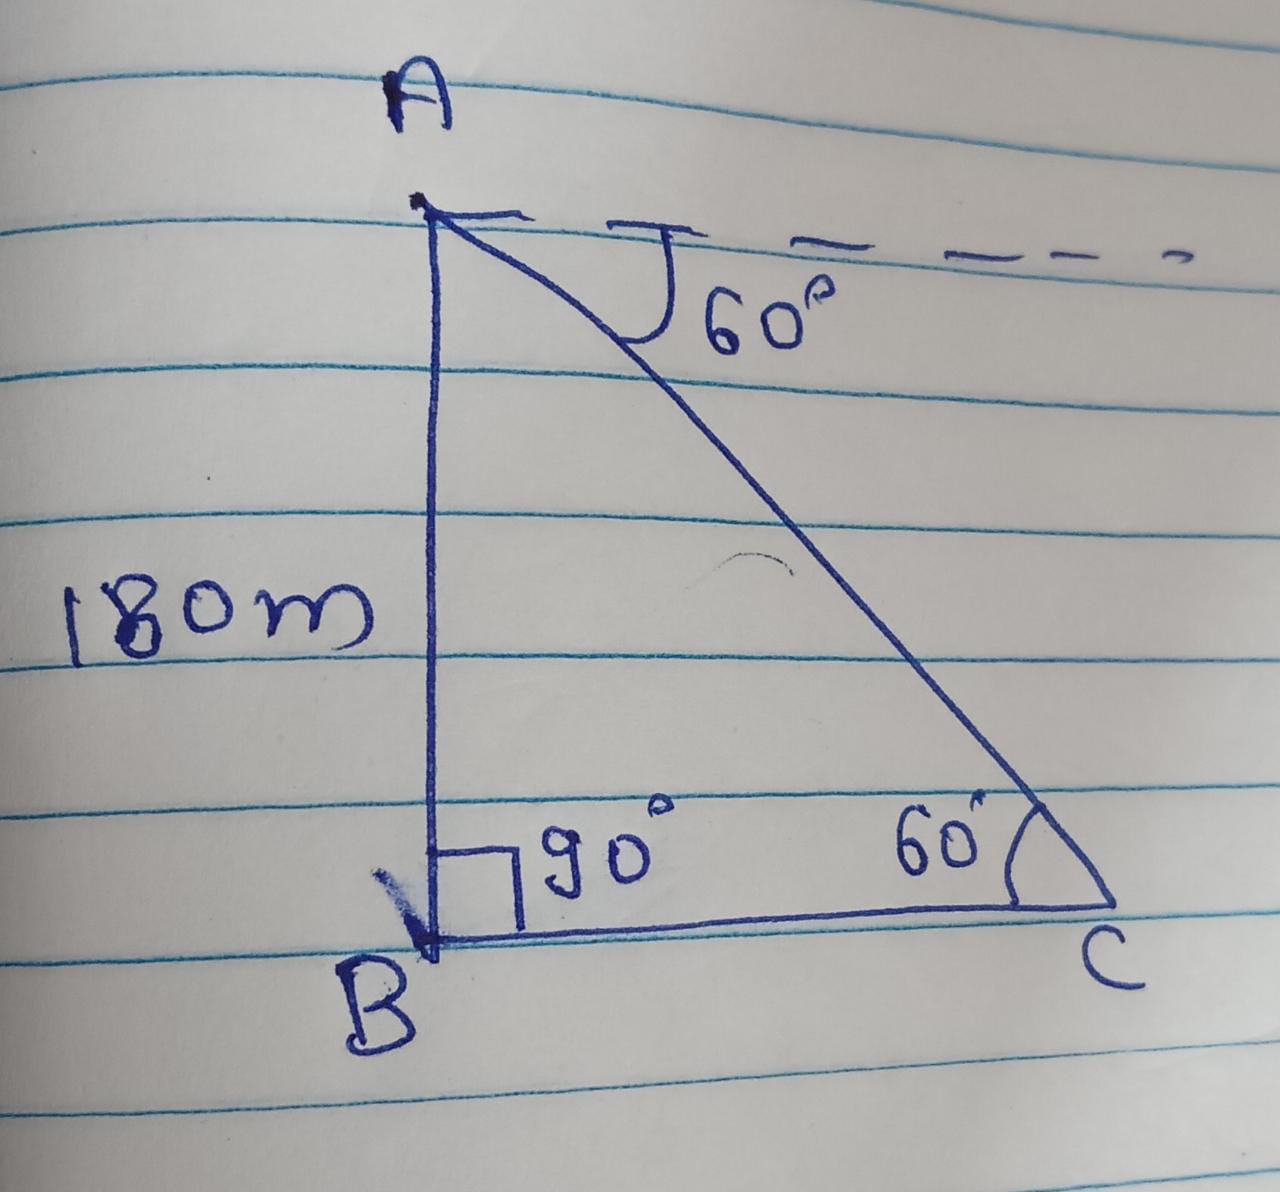 A
60°
180m
90°
60°
B
C